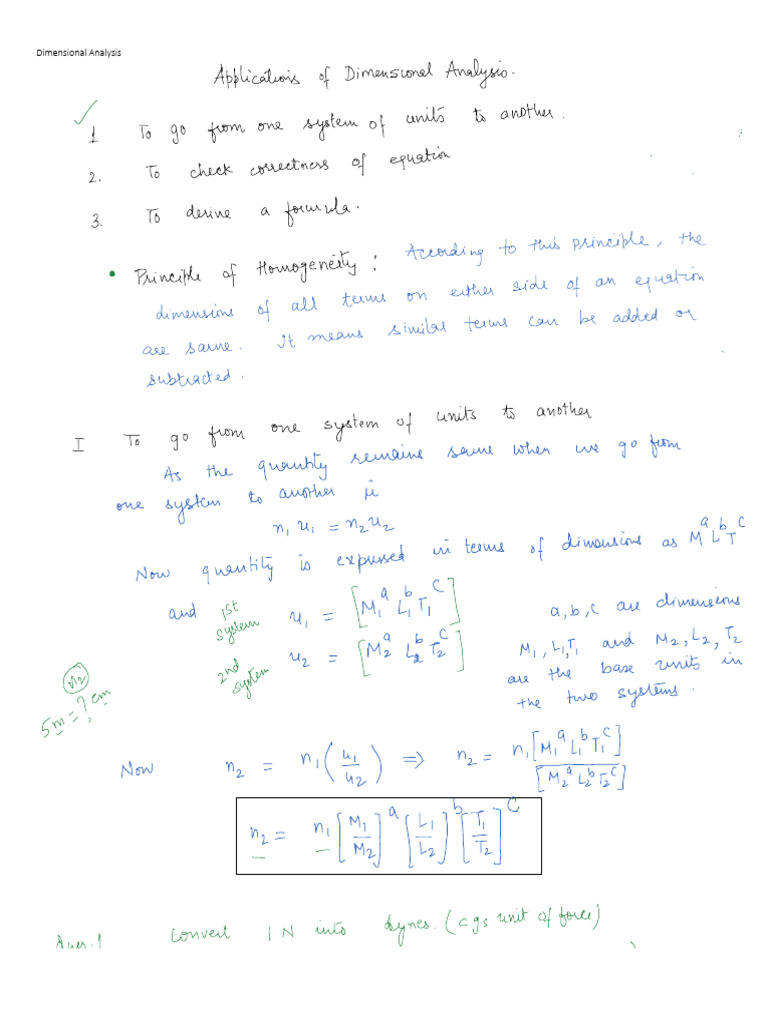 Dimensional Analysis
Applications of Dimensional Analysis.
✓
1 To go from one system of units to another.
2. To check correctness of equation
3. To derive a formula.
• Principle of Homogeneity : According to this principle, the
dimensions of all terms on either side of an equation
are same. It means similar terms can be added or
subtracted.
I To go from one system of units to another
As the quantity remains same when we go from
one system to another is
n₁ u₁ = n₂ u₂
Now quantity is expressed in terms of dimensions as Mᵃ Lᵇ Tᶜ
and 1st system u₁ = [M₁ᵃ L₁ᵇ T₁ᶜ] a, b, c are dimensions
2nd system u₂ = [M₂ᵃ L₂ᵇ T₂ᶜ] M₁, L₁, T₁ and M₂, L₂, T₂
are the base units in
the two systems.
n₂
5m = ? cm
Now n₂ = n₁ (u₁/u₂) ⇒ n₂ = n₁[M₁ᵃ L₁ᵇ T₁ᶜ]/[M₂ᵃ L₂ᵇ T₂ᶜ]
n₂ = n₁ [M₁/M₂]ᵃ [L₁/L₂]ᵇ [T₁/T₂]ᶜ
Ques.1 Convert 1 N into dynes. (cgs unit of force)